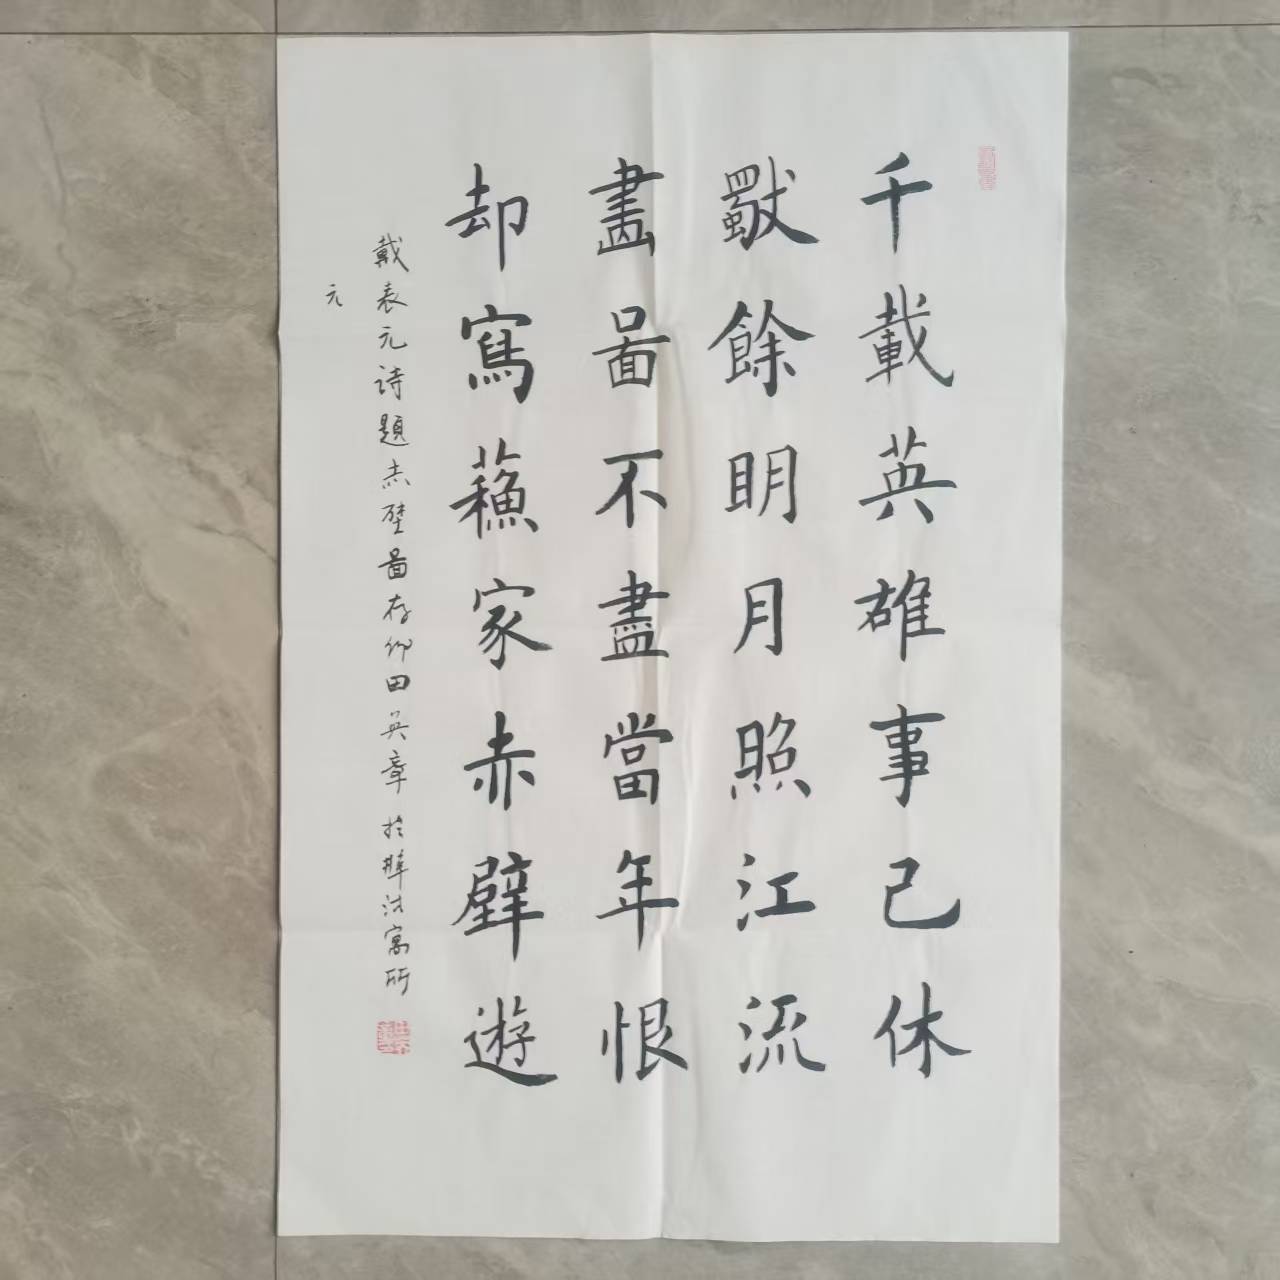 千載英雄事已休
獨餘明月照江流
畫啚不盡當年恨
却寫蘓家赤壁遊
戴表元詩題赤壁啚存仰田英章於
寓所
元